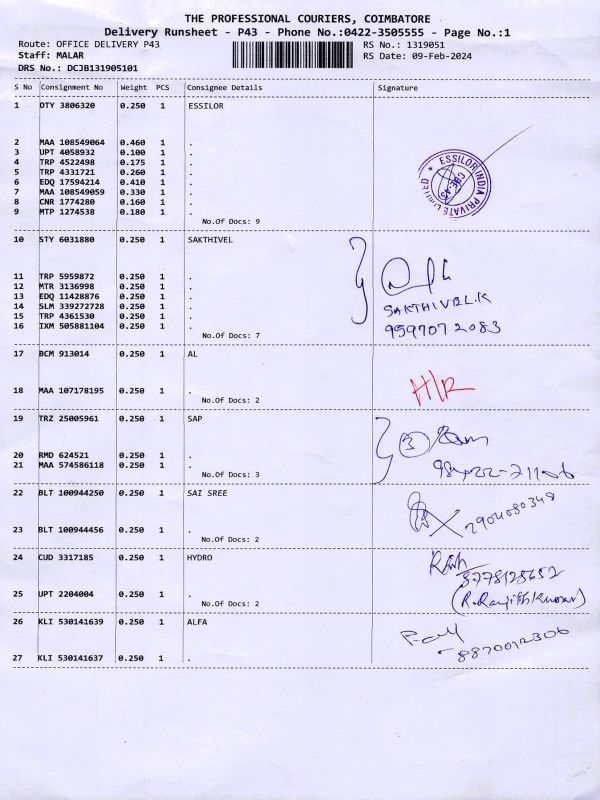 THE PROFESSIONAL COURIERS, COIMBATORE
Delivery Runsheet - P43 - Phone No.:0422-3505555 - Page No.:1
Route: OFFICE DELIVERY P43 RS No.: 1319051
Staff: MALAR RS Date: 09-Feb-2024
DRS No.: DCJB131905101
S No Consignment No Weight PCS Consignee Details Signature
1 DTY 3806320 0.250 1 ESSILOR
2 MAA 108549064 0.460 1 .
3 UPT 4058932 0.100 1 .
4 TRP 4522498 0.175 1 .
5 TRP 4331721 0.260 1 .
6 EDQ 17594214 0.410 1 .
7 MAA 108549059 0.330 1 .
8 CNR 1774280 0.160 1 .
9 MTP 1274538 0.180 1 .
No.Of Docs: 9
ESSILOR INDIA PRIVATE LIMITED
10 STY 6031880 0.250 1 SAKTHIVEL
11 TRP 5959872 0.250 1 .
12 MTR 3136998 0.250 1 .
13 EDQ 11428876 0.250 1 .
14 SLM 339272728 0.250 1 .
15 TRP 4361530 0.250 1 .
16 IXM 505881104 0.250 1 .
No.Of Docs: 7
SAKTHIVEL.K
9597072083
17 BCM 913014 0.250 1 AL
18 MAA 107178195 0.250 1 .
No.Of Docs: 2
H/R
19 TRZ 25005961 0.250 1 SAP
20 RMD 624521 0.250 1 .
21 MAA 574586118 0.250 1 .
No.Of Docs: 3
3
22 BLT 100944250 0.250 1 SAI SREE
23 BLT 100944456 0.250 1 .
No.Of Docs: 2
2904080348
24 CUD 3317185 0.250 1 HYDRO
25 UPT 2204004 0.250 1 .
No.Of Docs: 2
8778128652
(R.Ranjith Kumar)
26 KLI 530141639 0.250 1 ALFA
27 KLI 530141637 0.250 1 .
8870012306